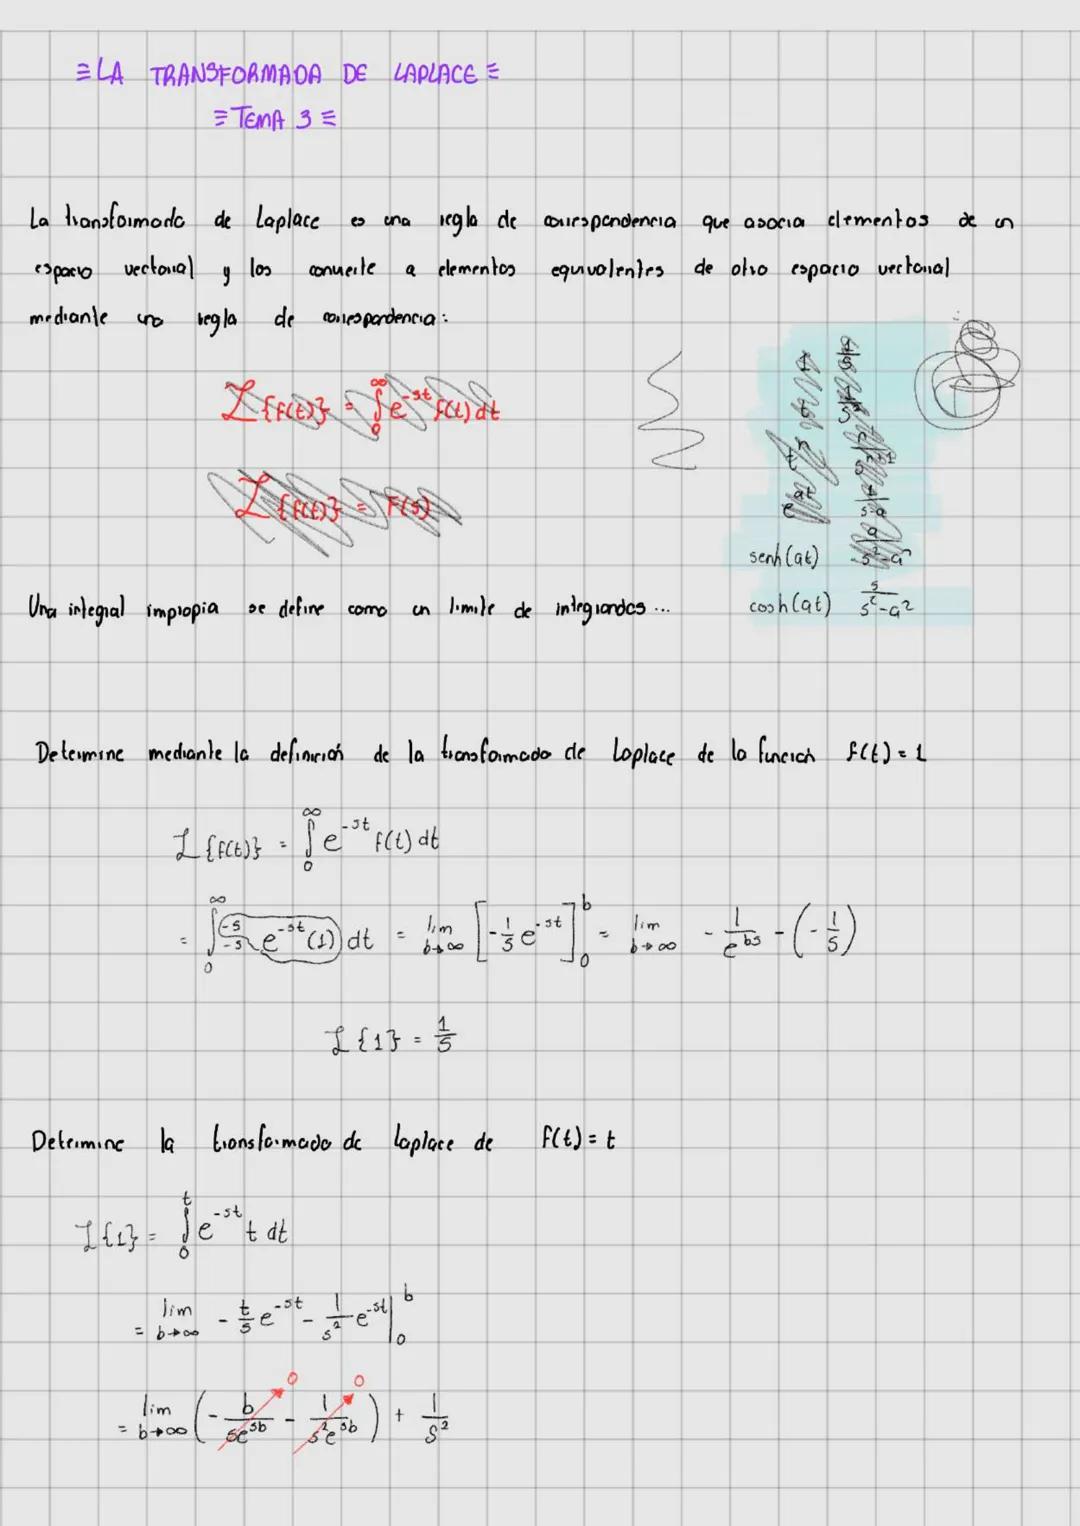 ≡ LA TRANSFORMADA DE LAPLACE ≡
≡ TEMA 3 ≡
La transformada de Laplace es una regla de correspondencia que asocia elementos de un
espacio vectorial y los convierte a elementos equivalentes de otro espacio vectorial
mediante una regla de correspondencia:
ℒ{f(t)} = ∫₀^∞ e^{-st} f(t) dt
ℒ{f(t)} = F(s)
e^{at} 1/(s-a)
senh(at) a/(s²-a²)
cosh(at) s/(s²-a²)
Una integral impropia se define como un limite de integrandos ...
Determine mediante la definición de la transformada de Laplace de la función f(t) = 1
ℒ{f(t)} = ∫₀^∞ e^{-st} f(t) dt
= ∫₀^∞ (-s/-s) e^{-st} (1) dt = lim b→∞ [-1/s e^{-st}]₀^b = lim b→∞ - 1/e^{bs} - (-1/s)
ℒ{1} = 1/s
Determine la transformada de Laplace de f(t) = t
ℒ{1} = ∫₀^t e^{-st} t dt
= lim b→∞ - t/s e^{-st} - 1/s² e^{-st} |₀^b
0 0
= lim b→∞ (- b/se^{sb} - 1/s²e^{sb}) + 1/s²